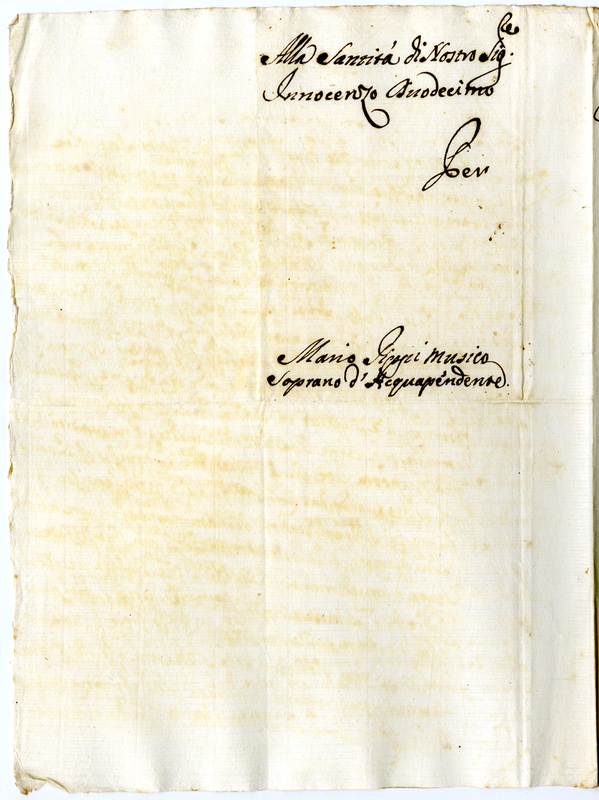 Alla Santità di Nostro Sig.re
Innocenzo Duodecimo
Per
Mario musico
Soprano d'Acquapendente.